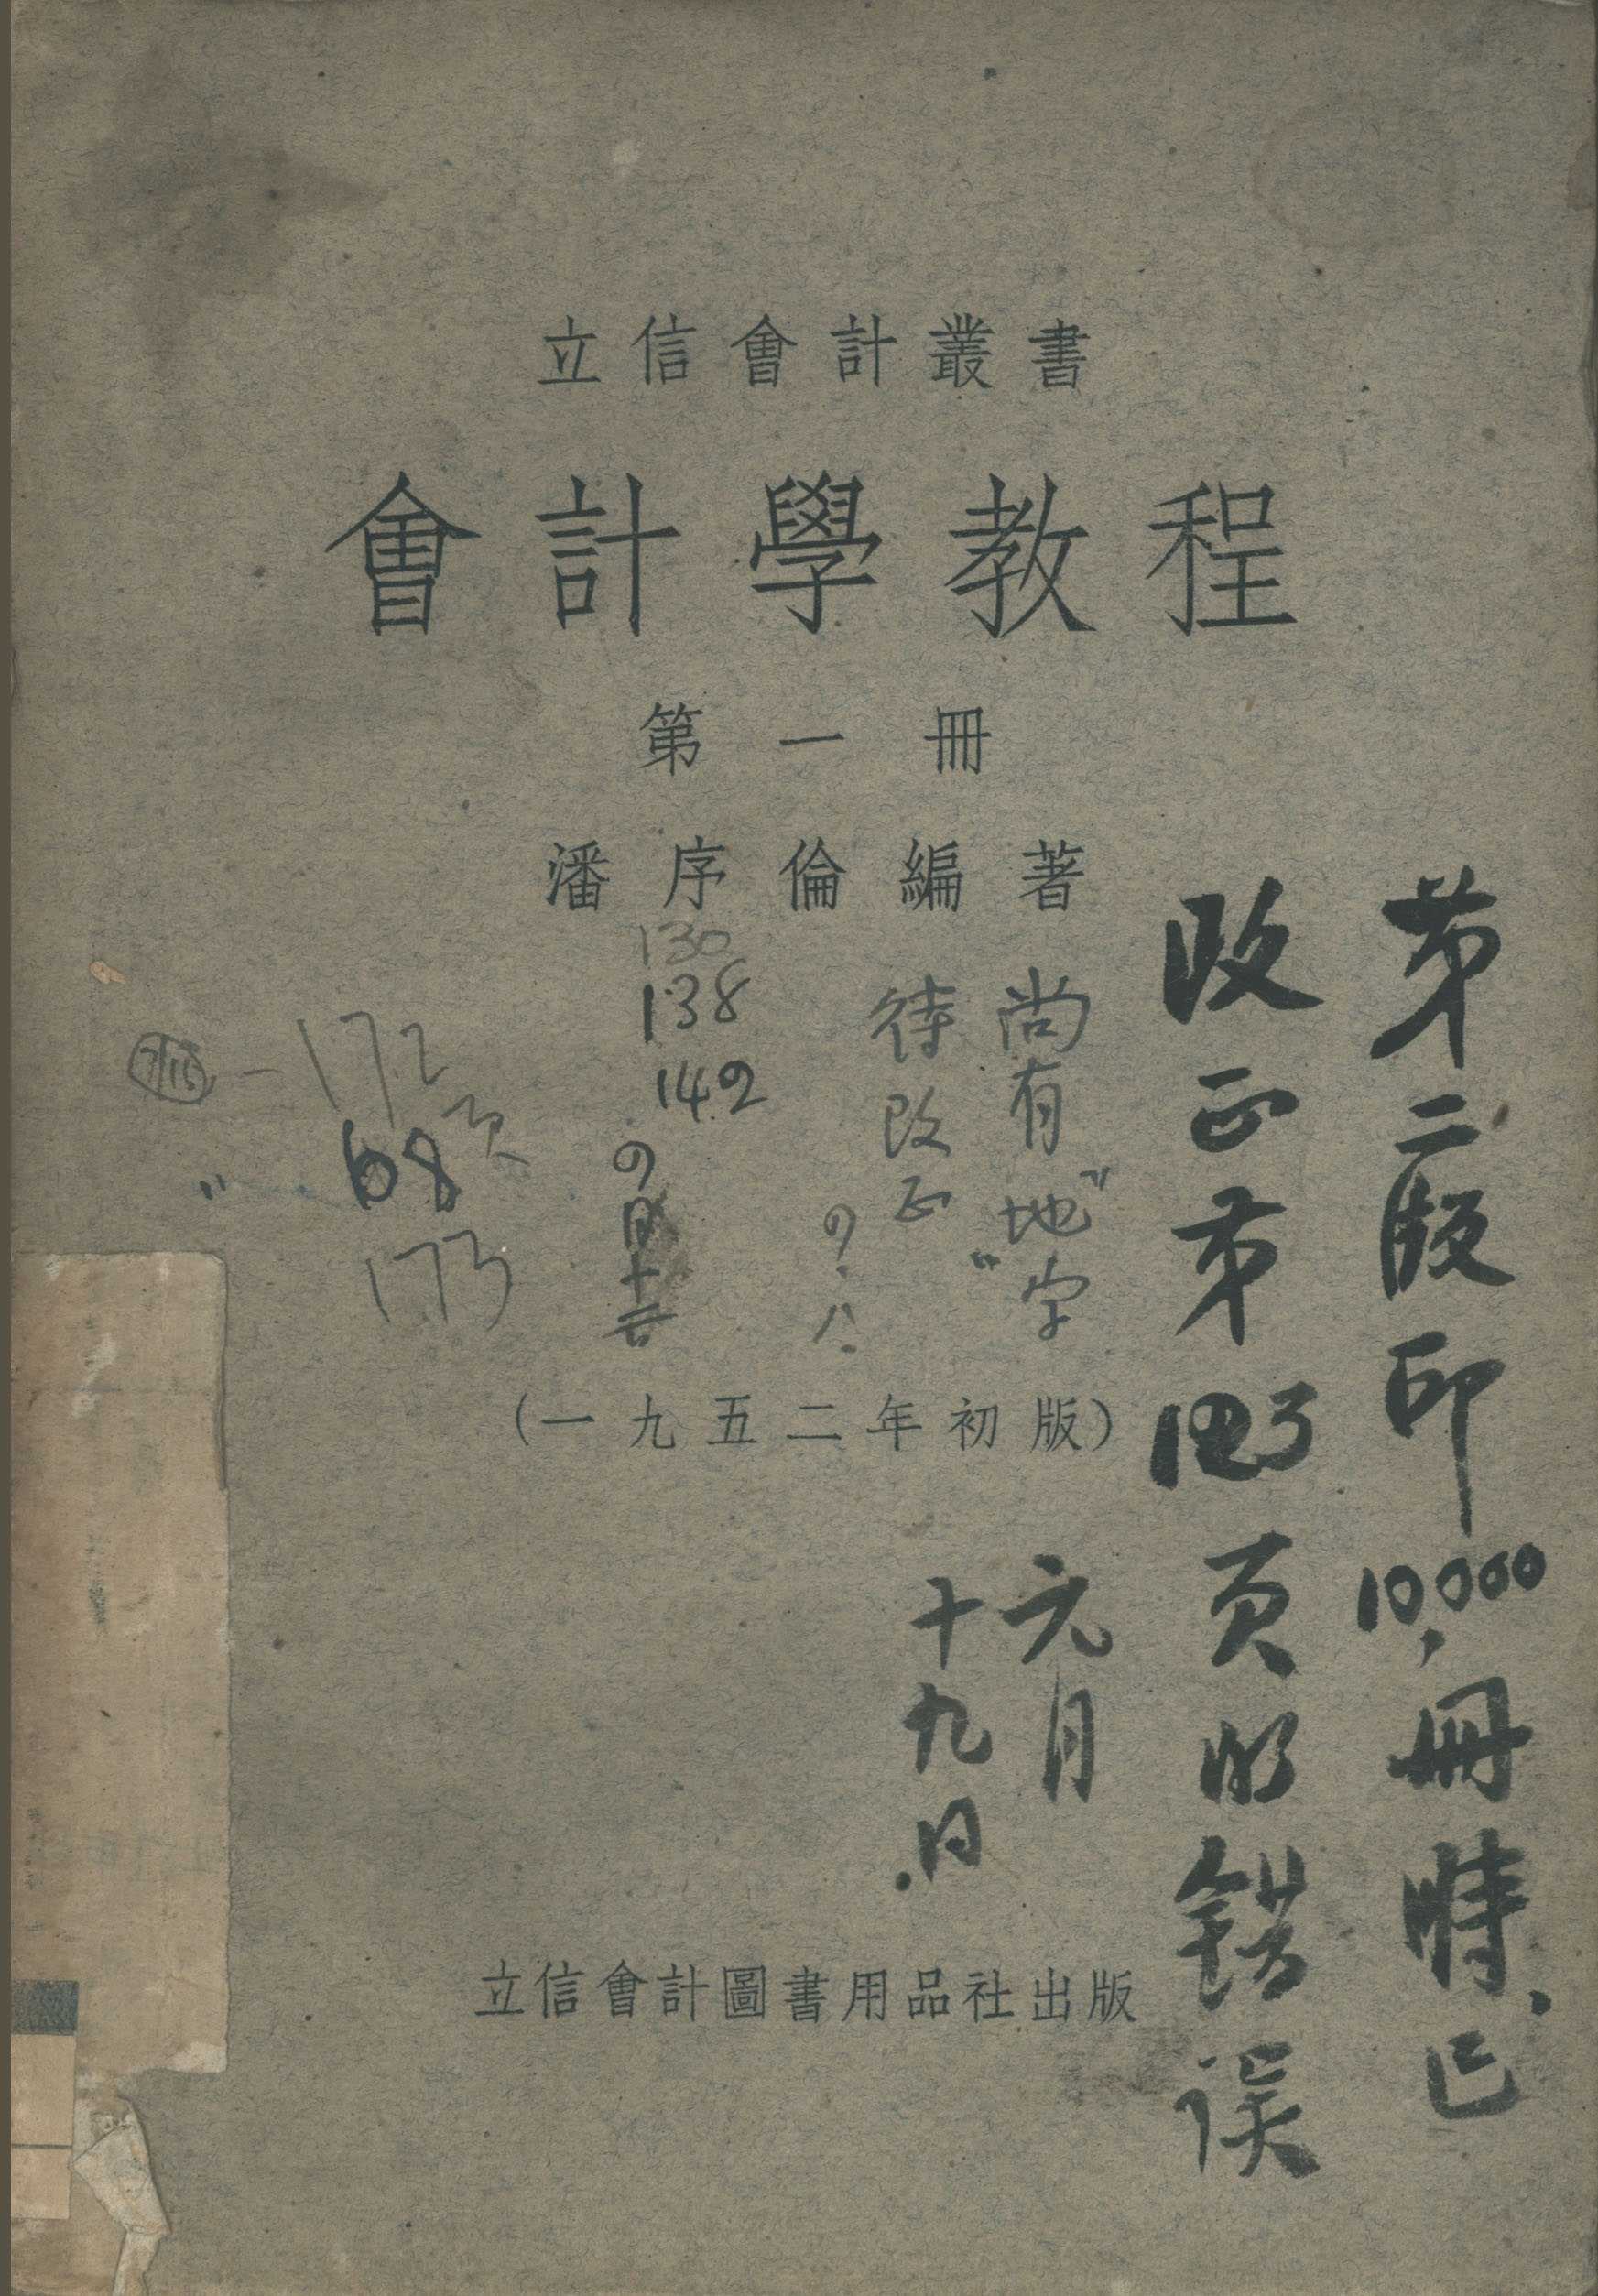 立信會計叢書
會計學教程
第一冊
潘序倫編著
第二版印10,000冊時、已
改正第123页的错误
元月
十九日.
尚有"地"字
待改正
の.八.
130
138
142
の月十
7/15 — 172页
" 68
173
(一九五二年初版)
立信會計圖書用品社出版